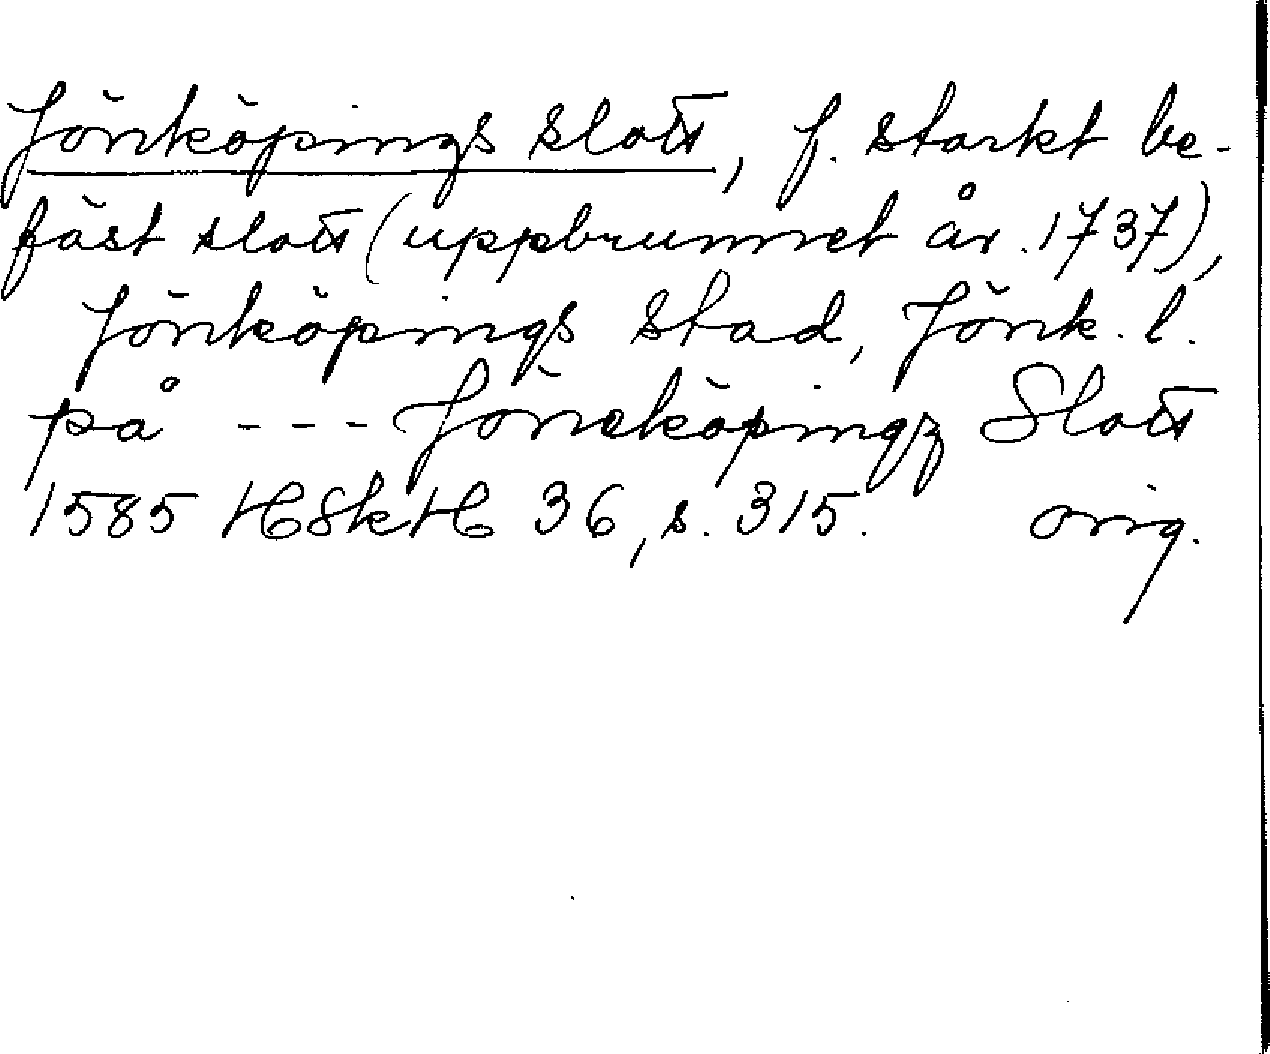 Jönköpings slott, f. starkt be-
fäst slott (uppbrunnet år 1737),
Jönköpings stad, Jönk. l.
på --- Jöneköpingz Slott
1585 HSkH 36, s. 315. orig.